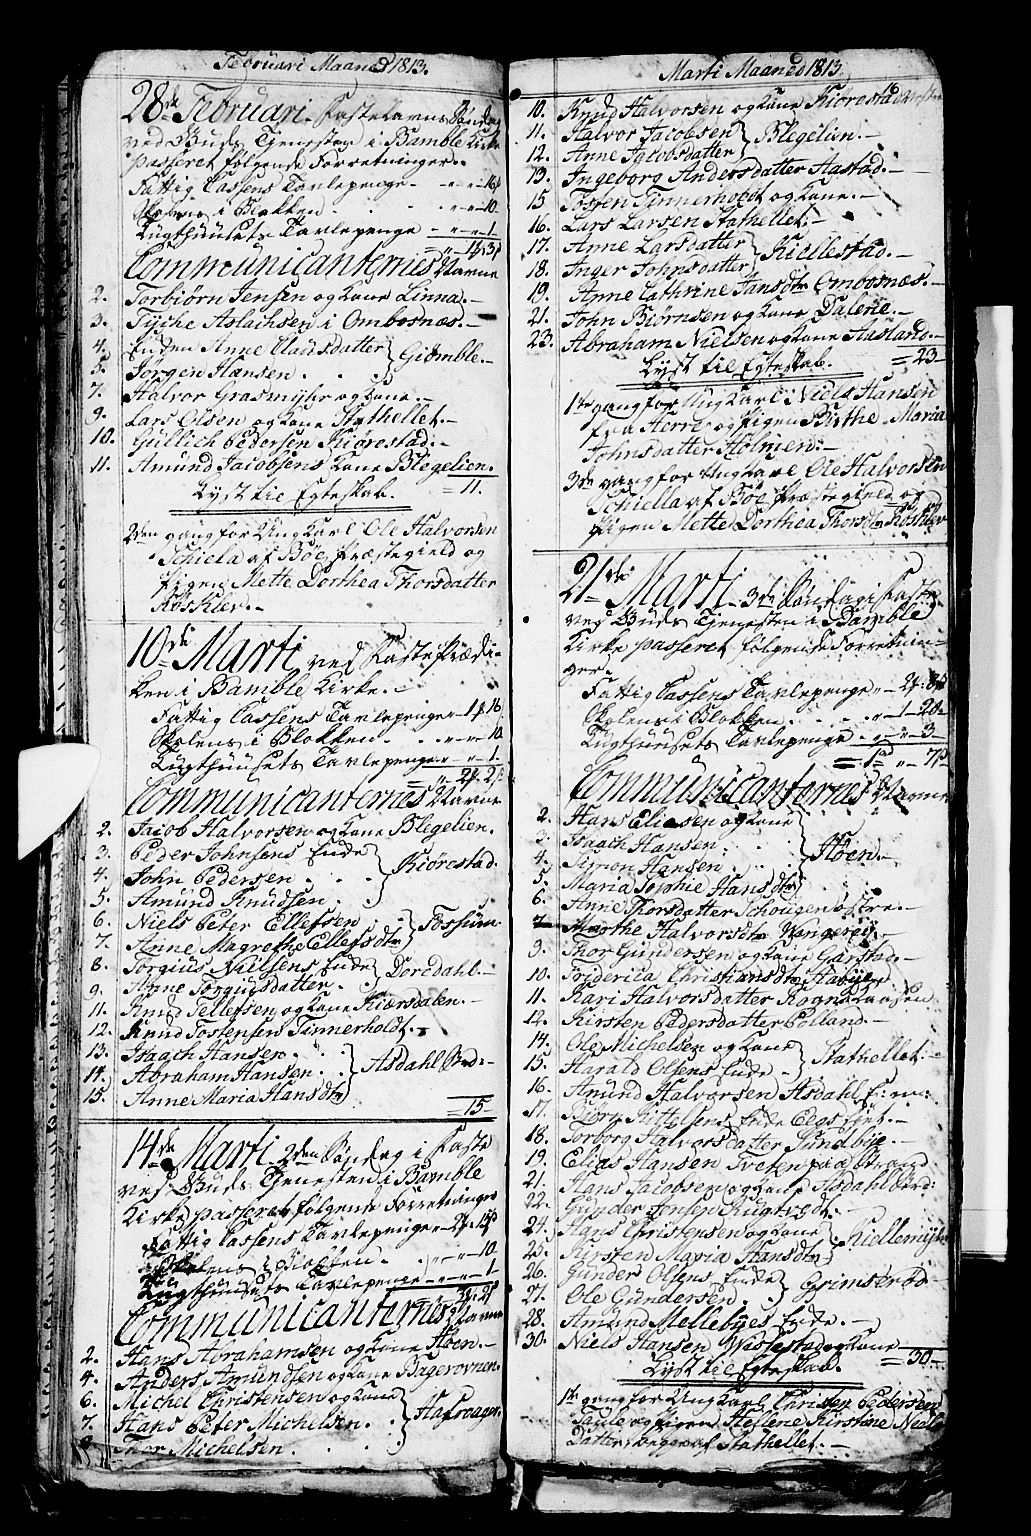 Februari Maaned 1813.
28de Februari. Fastelavns Søndag
ved Guds Tjenesten i Bamble Kirke
passeret følgende Forretninger.
Fattig Cassens Tavlepenge - 16
Skolens i Blokken - 10
Tugthuusets Tavlepenge - 1
Communicanternes Navne
2. Torbiørn Jensen og Kone Linna.
3. Tyche Aslachsen i Ombosnæs.
4. Enken Anne Clausdatter } Giømble.
5. Jørgen Hansen
7. Halvor Grasmyhr og Kone.
9. Lars Olsen og Kone Stathellet.
10. Gullich Pedersen Kiørestad.
11. Amund Jacobsens Kone Blegelien.
= 11.
Lyst til Egteskab.
2den gang for Ung Karl Ole Halvorsen
Schiela af Bøe Præstegield og
Pigen Mette Dorthea Thorsdatter
Røskler.
10de Marti ved Faste Prædi-
ken i Bamble Kirke.
Fattig Cassens Tavlepenge - 16
Skolens i Blokken - 10
Tugthuusets Tavlepenge - 1
Communicanternes Navne
2. Jacob Halvorsen og Kone Blegelien.
3. Peder Johnsens Enke } Kiørestad.
4. John Pedersen
5. Amund Knudsen
6. Niels Peter Ellefsen } Fossum
7. Anne Magrethe Ellefsdtr
8. Torgius Nielsens Enke } Dordahl.
9. Anne Torgiusdatter.
11. Knud Tellefsen og Kone Kiærsdalen.
12. Knud Tostensen Tinnerholdt.
13. Isaach Hansen } Asdahl
14. Abraham Hansen
15. Anne Maria Hansdtr
= 15
14de Marti 2den Søndag i Faste
ved Guds Tjenesten i Bamble
Kirke passeret følgende Forretninger
Fattig Cassens Tavlepenge
Skolens i Blokken - 10
Tugthuusets Tavlepenge - 1
Communicanternes Navne
2. Hans Abrahamsen og Kone Høen.
4. Anders Amundsen og Kone
6. Michel Christensen og Kone
7. Hans Peter Michelsen.
Michelsen.
Marti Maaned 1813.
10. Knud Halvorsen og Kone Kiørestad
11. Halvor Jacobsen } Blegelien.
12. Anne Jacobsdatter
13. Ingeborg Andersdatter Aastad.
15 Tosten Tinnerholdt og Kone.
16. Lars Larsen Stathellet.
17. Anne Larsdatter } Kiellestad.
18. Inger Johnsdatter
19. Anne Cathrine Jansdtr Ombosnæs.
21. John Biørnsen og Kone Dalene.
23. Abraham Nielsen og Kone Aasland.
= 23
Lyst til Egteskab.
1te gang for Ung Karl Niels Hansen
fra Herre og Pigen Birthe Maria
Johnsdatter Holmen.
3de gang for Ung Karl Ole Halvorsen
Schiella af Bøe Præstegield og
Pigen Mette Dorthea Thorsdtr Røskler
21de Marti 3de Søndag i Faste
ved Guds Tjenesten i Bamble
Kirke passeret følgende Forretnin-
ger.
Fattig Cassens Tavlepenge
Skolens i Blokken
Tugthuusets Tavlepenge - 3
Communicanternes Navne
2. Hans Eliesen og Kone } Høen.
3. Isaach Hansen
4. Simon Hansen
5. Maria Sophie Hansdtr
6. Anne Thorsdatter Schougen østre.
7. Marthe Halvorsdtr
9. Thor Gundersen og Kone Garstad.
10. Friderica Christiansdtr
11. Kari Halvorsdatter
12. Kirsten Pedersdatter Rolland.
14. Ole Michelsen og Kone } Stathellet.
15. Harald Olsens Enke
16. Amund Halvorsen Asdahl
17. Biørn Kittelsens Enke
18. Torborg Halvorsdatter Sundbye
19. Elias Hansen Tveten paa Strand
21. Hans Jacobsen og Kone Asdahl
22. Gunder Jensen Rugtvedt.
24. Hans Christensen og Kone } Kiellemyhr
25. Kirsten Maria Hansdtr
26. Gunder Olsens Enke } Grimserød
27. Ole Gundersen.
28. Amund Mellebyes Enke.
30. Niels Hansen Wissestad og Kone
= 30
Lyst til Egteskab.
1te gang for Ung Karl Christen Pedersen
og Pigen Hellene Kirstine Niels
Datter, begge af Stathellet.